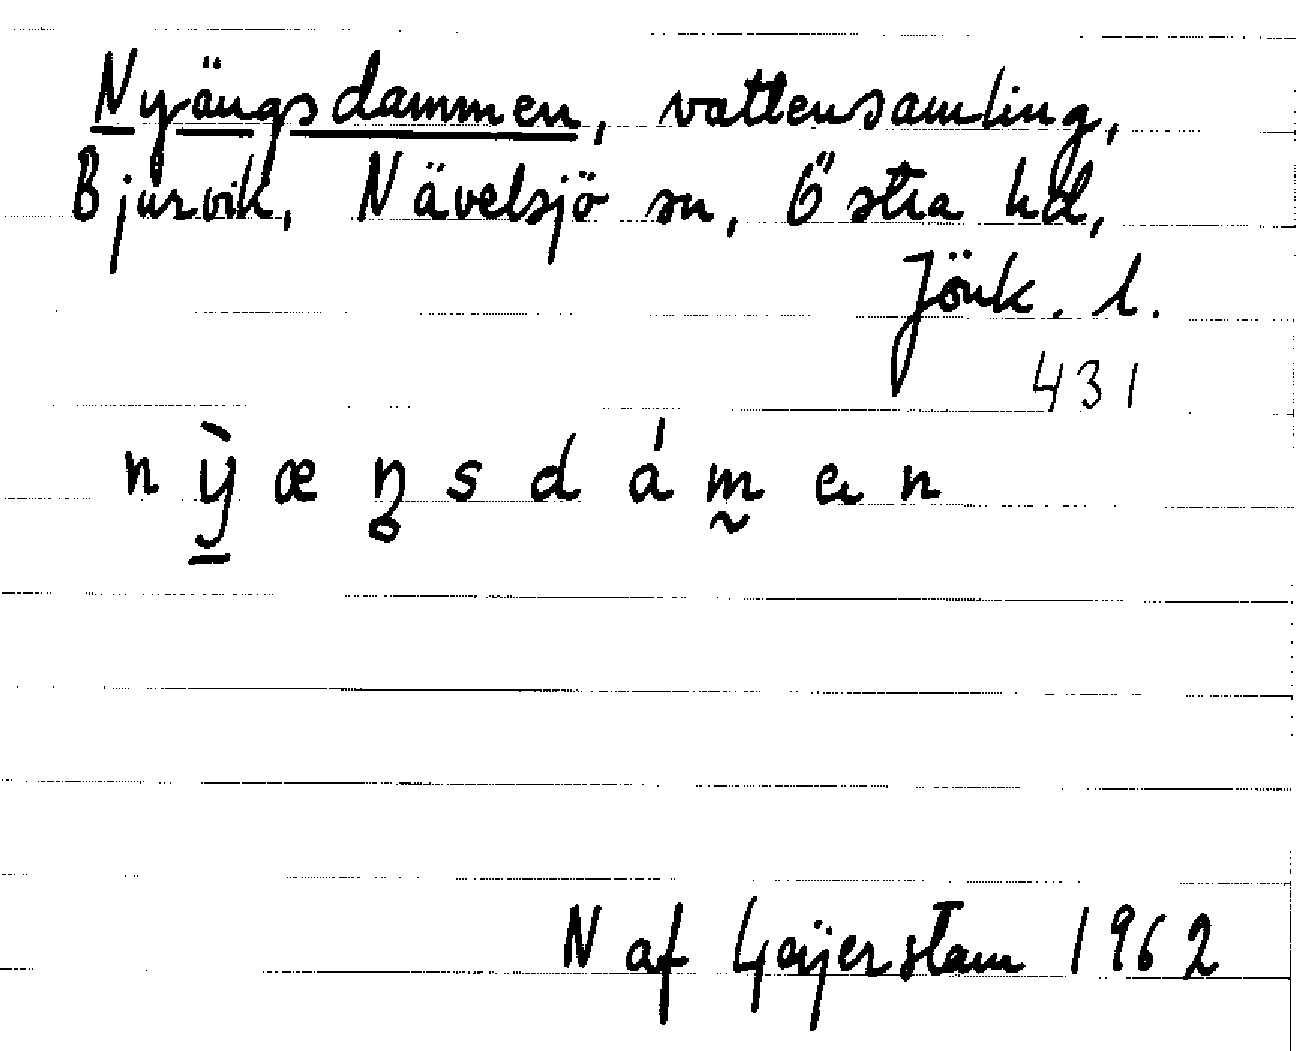 Nyängsdammen, vattensamling,
Bjurvik, Nävelsjö sn, Östra hd,
Jönk. l.
431
n ỳ æ ŋ s d á m e n
N af Geijerstam 1962